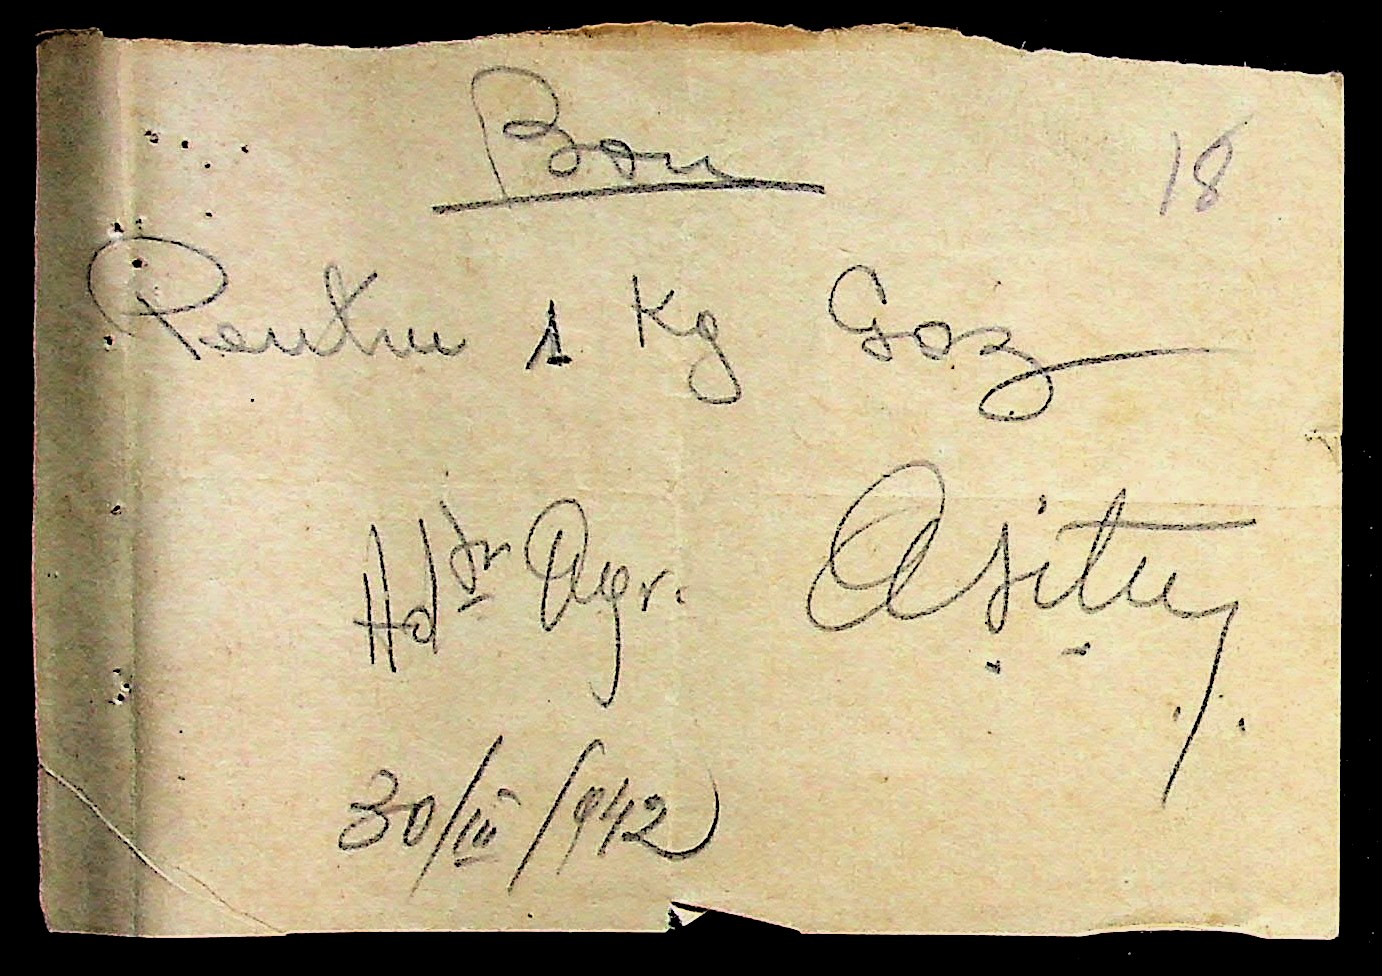 Bon
18
Pentru 1 Kg Gaz
Adtr Agr.
30/III/942